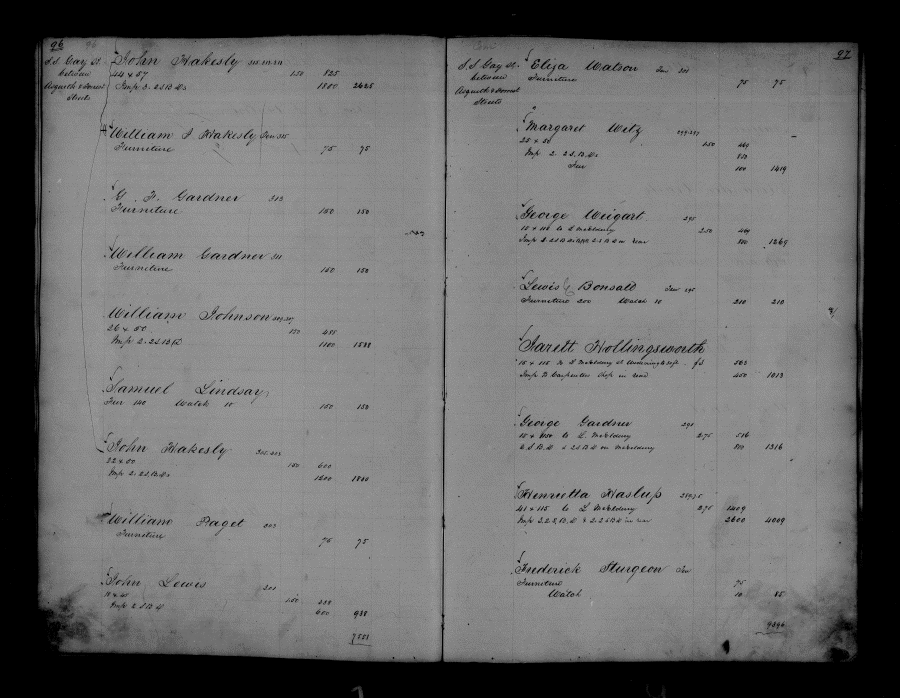 96
S. S. Gay St.
between
Asquith & Forrest
Streets
John Hakesly
44 x 57 150 825
Imp 3. 2 S B Ds 1800 2625
William J Hakesly
Furniture 75 75
G. F. Gardner 313
Furniture 150 150
William Gardner 311
Furniture 150 150
William Johnson
26 x 50 150
Imp 2. 2 S B D 1100
Samuel Lindsay
Fur 140 Watch 10 150 150
John Hakesly
150 600
Imp 2. 2 S B Ds 1200 1800
William Paget 303
Furniture 75 75
John Lewis 301
150 338
Imp 2 S B D 600 938
97
S. S Gay St.
between
Asquith & Forrest
Streets
Eliza Watson Fur 301
Furniture 75 75
Margaret Wetz
25 x 50 150 469
Imp 2. 2 S. B. Ds 850
Fur 100 1419
George Weigart 295
15 x 115 to L McElderry 250 469
Imp 2. 2 S B D in rear 800 1269
Lewis Bonsall Fur 295
Furniture 200 Watch 10 210 210
Jarett Hollingsworth
15 x 115 to L McElderry 563
Imp B Carpenter Shop in rear 450 1013
George Gardner 291
to L. McElderry 275 516
2 S B D & 2 S B D on McElderry 800 1316
Henrietta Haslup
41 x 115 to L McElderry 275 1409
2600 4009
Frederick Sturgeon Fur
Furniture 75
Watch 10 85
9396